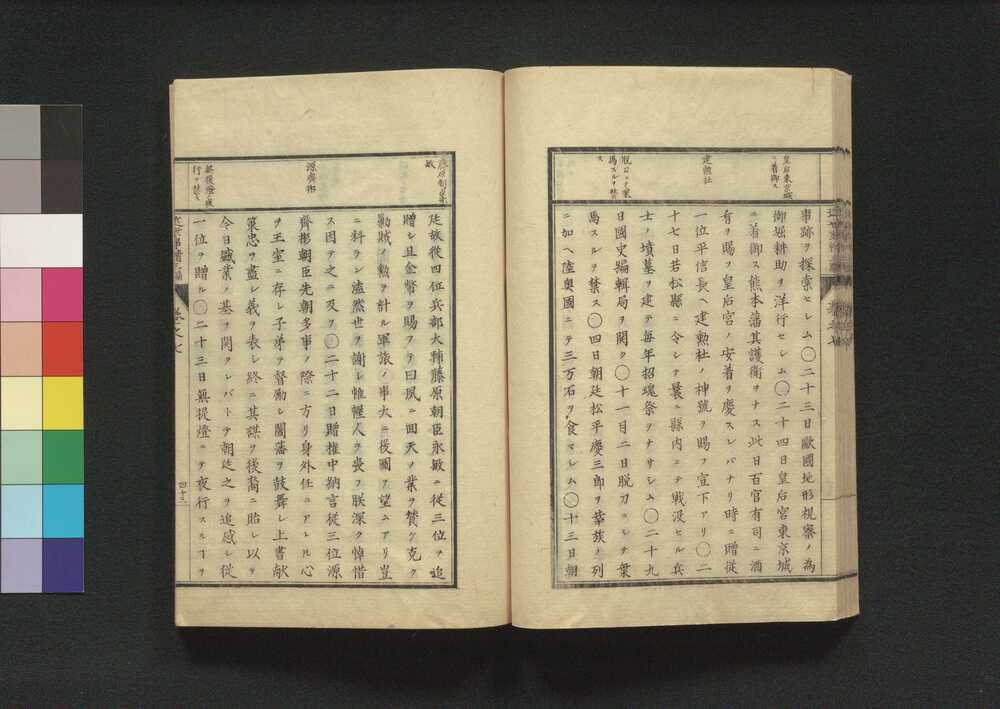 皇后東京城
ニ着御ス
建勲社
脱刀シテ業
馬スルヲ禁
ス
事跡ヲ探索セシム○二十三日歐國地形視察ノ為
御堀耕助ヲ洋行セシム○二十四日皇后宮東京城
ニ着御ス熊本藩其護衛ヲナス此日百官有司ニ酒
肴ヲ賜フ皇后宮ノ安着ヲ慶スレバナリ時ニ贈從
一位平信長ヘ建勲社ノ神號ヲ賜フ宣下アリ○二
十七日若松縣ニ令シテ曩ニ縣内ニテ戰沒セル兵
士ノ墳墓ヲ建テ毎年招魂祭ヲナサシム○二十九
日國史編輯局ヲ開ク○十一月二日脱刀ニシテ乗
馬スルヲ禁ス○四日朝廷松平慶三郎ヲ華族ノ列
ニ加ヘ陸奥國ニテ三万石ヲ食マシム○十三日朝
藤原朝臣永
敏
源齊彬
無提燈ニ夜
行ヲ禁ス
廷故從四位兵部大輔藤原朝臣永敏ニ從三位ヲ追
贈シ且金幣ヲ賜フテ曰夙ニ回天ノ業ヲ賛ケ克ク
勦賊ノ勲ヲ計ル軍旅ノ事大ニ後圖ヲ望ムアリ豈
ニ料ラン溘然世ヲ謝シ惟幄人ヲ喪フ朕深ク悼惜
ス因テ之ニ及フ○二十二日贈權中納言從三位源
齊彬朝臣先朝多事ノ際ニ方リ身外任ニアレトモ心
ヲ王室ニ存シ子弟ヲ督勵シ闔藩ヲ鼓舞シ上書献
策忠ヲ盡シ義ヲ表シ終ニ其謀ヲ後裔ニ貽シ以テ
今日盛業ノ基ヲ開クレバトテ朝廷之ヲ追感シ從
一位ヲ贈ル○二十三日無提燈ニテ夜行スルヲ
四十三